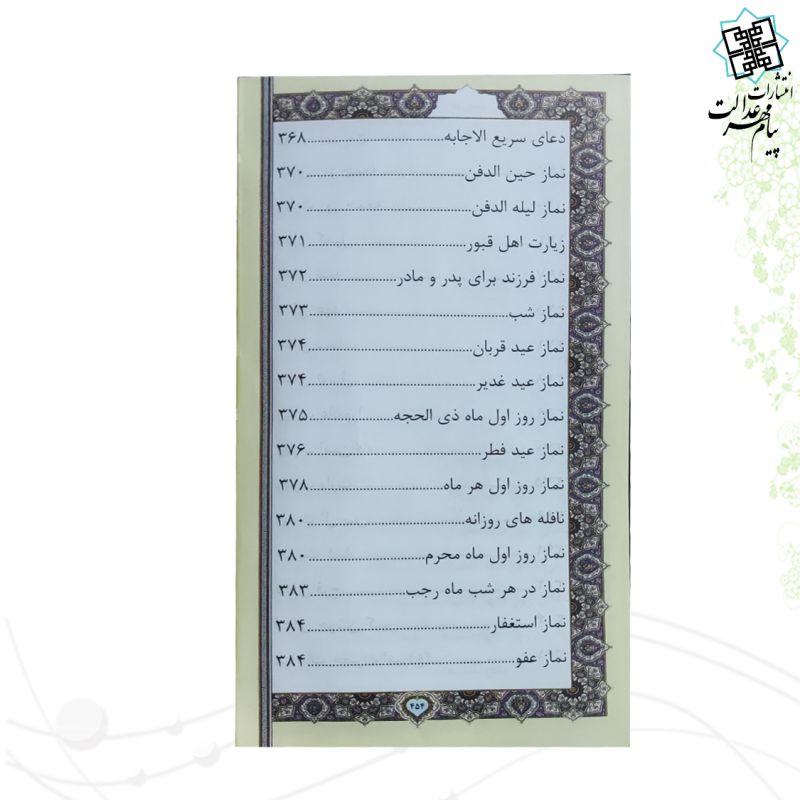 انتشارات
پیام مهر عدالت
دعای سریع الاجابه................................۳۶۸
نماز حین الدفن................................۳۷۰
نماز لیله الدفن................................۳۷۰
زیارت اهل قبور................................۳۷۱
نماز فرزند برای پدر و مادر................................۳۷۲
نماز شب................................۳۷۳
نماز عید قربان................................۳۷۴
نماز عید غدیر................................۳۷۴
نماز روز اول ماه ذی الحجه................................۳۷۵
نماز عید فطر................................۳۷۶
نماز روز اول هر ماه................................۳۷۸
نافله های روزانه................................۳۸۰
نماز روز اول ماه محرم................................۳۸۰
نماز در هر شب ماه رجب................................۳۸۳
نماز استغفار................................۳۸۴
نماز عفو................................۳۸۴
۴۵۴